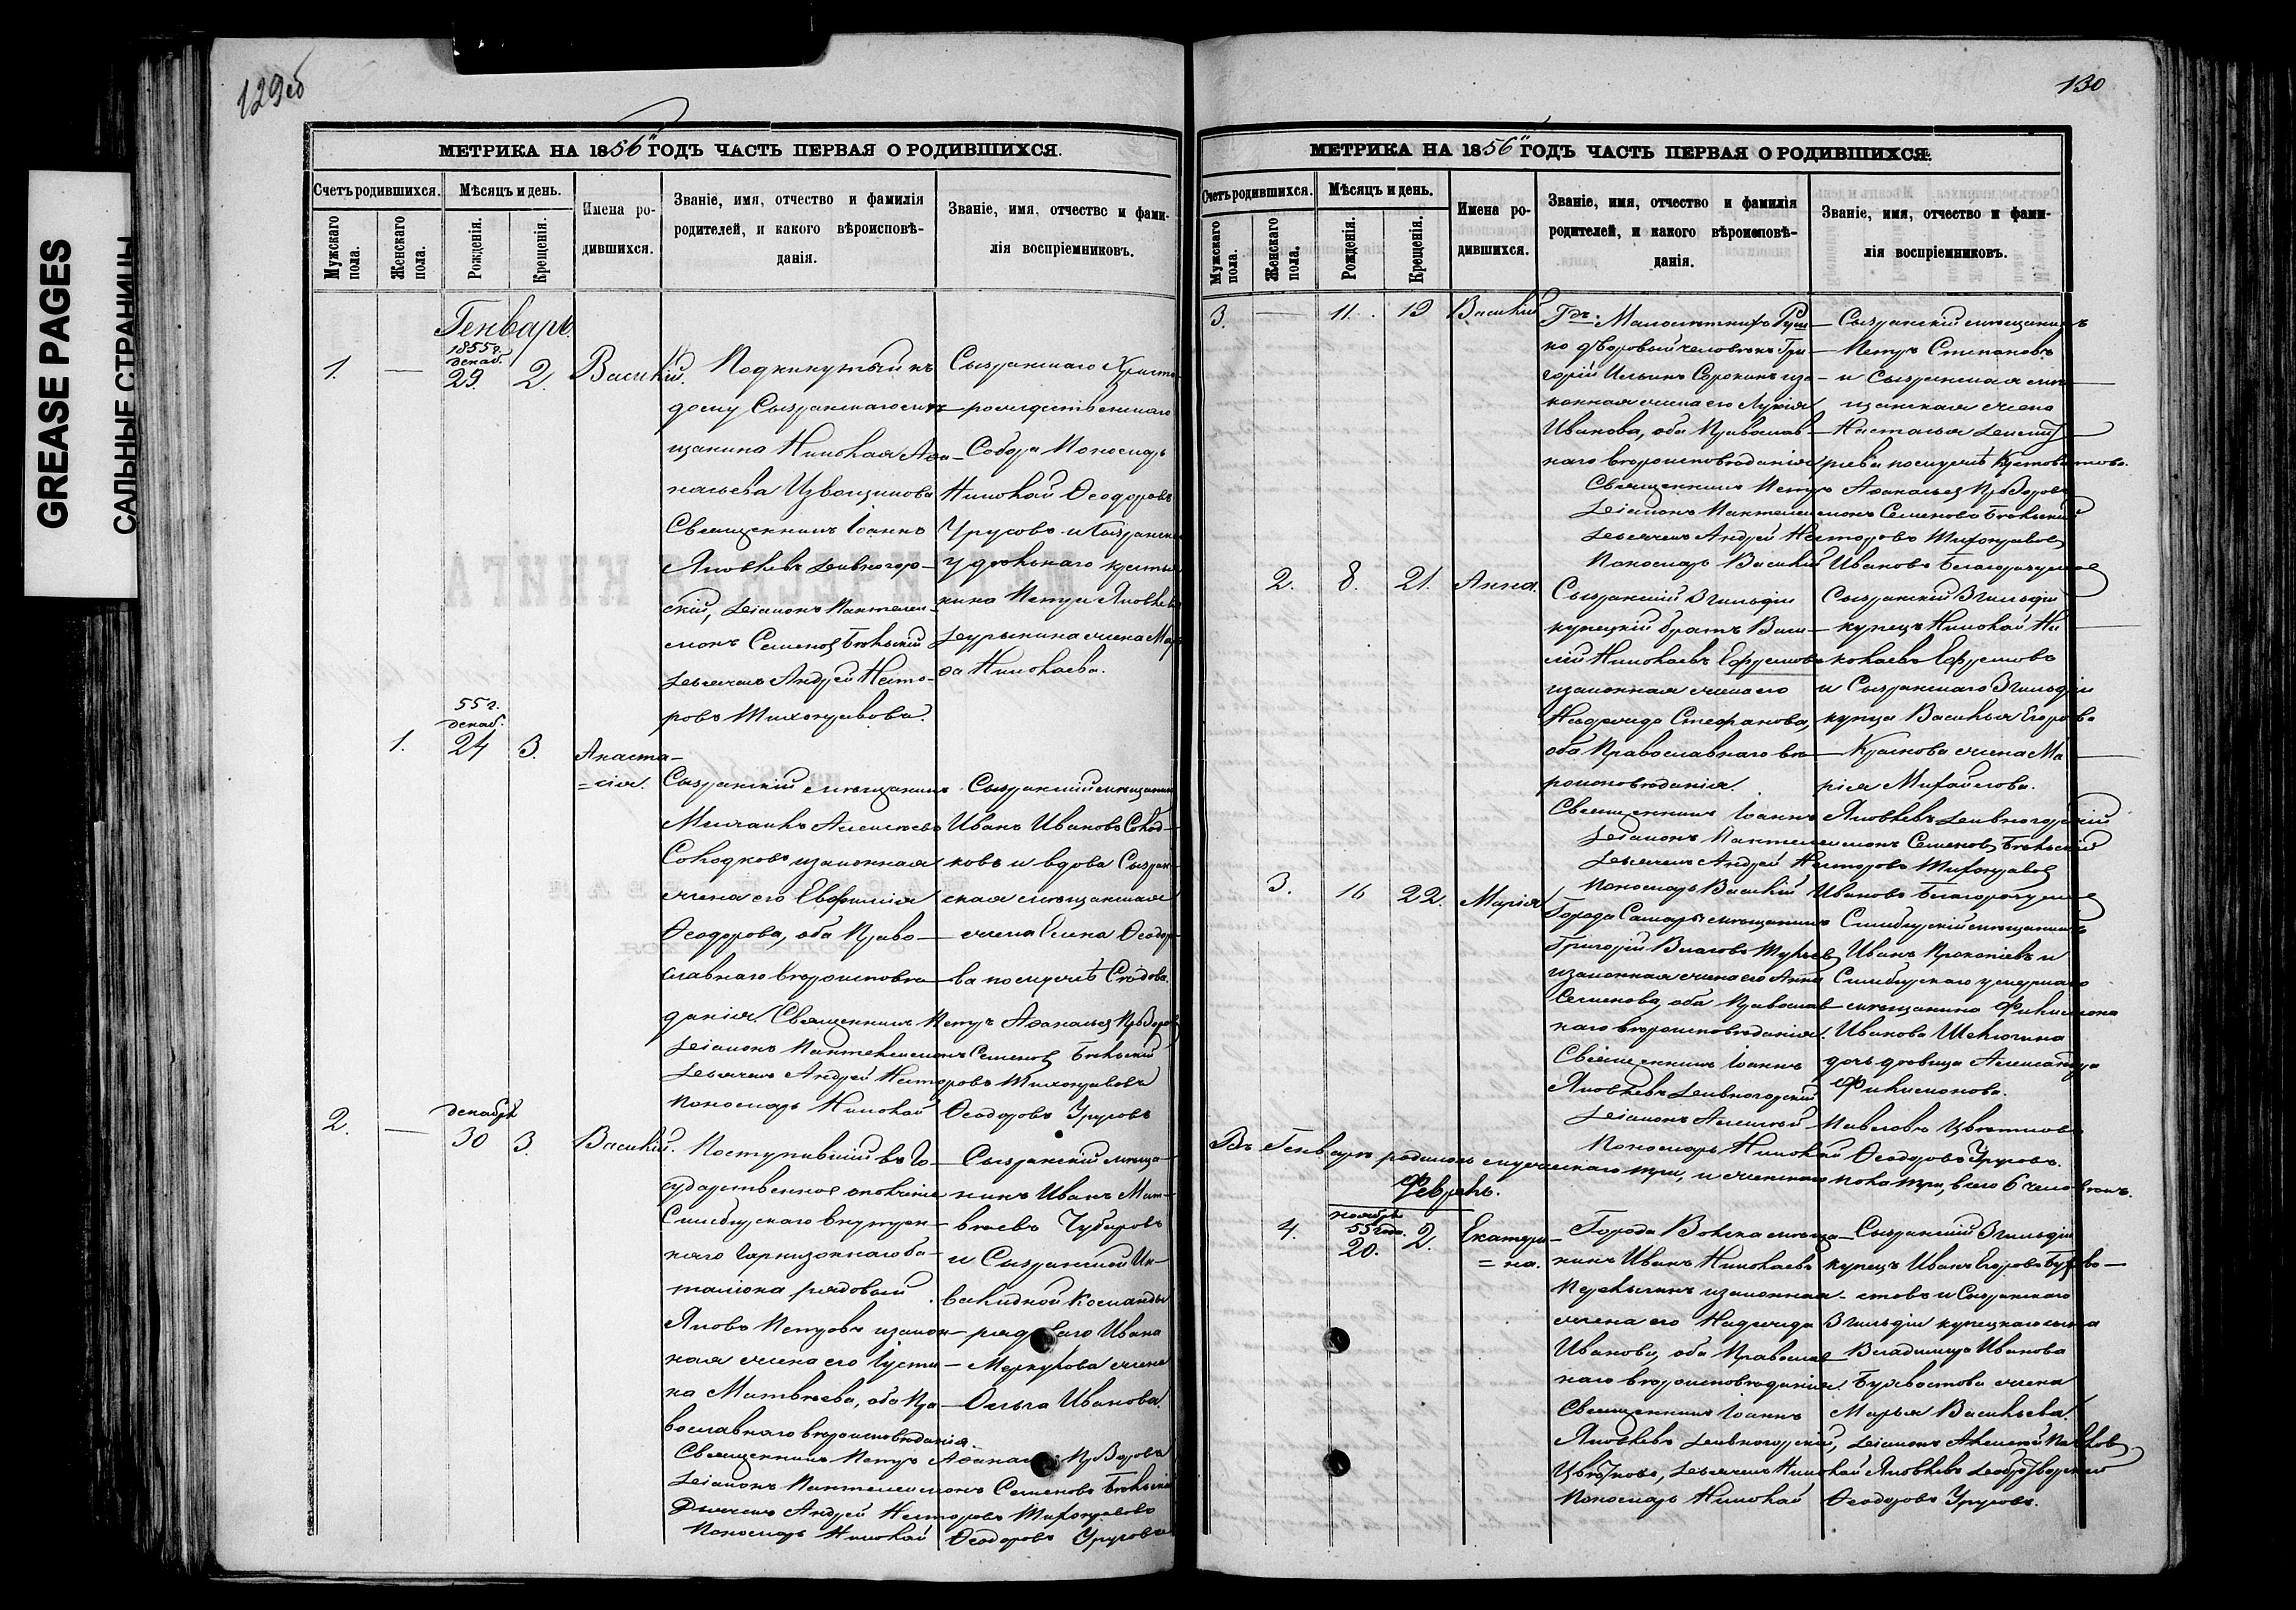 GREASE PAGES
САЛЬНЫЕ СТРАНИЦЫ
129об
МЕТРИКА НА 1856й ГОДЪ ЧАСТЬ ПЕРВАЯ О РОДИВШИХСЯ.
Счетъ родившихся.
Мужскаго пола.
Женскаго пола.
Мѣсяцъ и день.
Рожденія.
Крещенія.
Имена ро-
дившихся.
Званіе, имя, отчество и фамилія
родителей, и какого вѣроисповѣ-
данія.
Званіе, имя, отчество и фами-
лія воспріемниковъ.
Генварь
1. — 1855 г. декаб. 29 2. Василій.
Подкинутый къ
дому Сызранскаго мѣ-
щанина Николая Аѳа-
насьева Извощикова
Священникъ Іоаннъ
Яковлевъ Дивногор-
скій, Діаконъ Пантелеи-
монъ Семеновъ Бѣльскій
Дьячекъ Андрей Несто-
ровъ Тихонравовъ.
Сызранскаго Христо-
рождественскаго
Собора Пономарь
Николай Ѳеодоровъ
Урусовъ и Сызранска
удѣльнаго крестья
нина Петра Яковлева
жена Мар
ѳа Николаева.
1. 55 г. декаб. 24 3. Анаста-
=сія.
Сызранскій мѣщанинъ
Михаилъ Алексѣевъ
Солодковъ и законная
жена его Евфимія
Ѳеодорова, оба Право-
славнаго вѣроисповѣ-
данія. Священникъ Петръ Аѳанасьев
Діаконъ Пантелеимонъ Семеновъ Бѣльскій
Дьячекъ Андрей Несторовъ Тихонравовъ
Пономарь Николай Ѳеодоровъ Урусовъ
Сызранскій мѣщанинъ
Иванъ Ивановъ Солод-
ковъ и вдова Сызран-
ская мѣщанская
жена Елена Ѳеодоро-
ва по мужѣ
2. — декабря 30 3. Василій.
Поступившій въ Го-
сударственное ополченіе
Симбирскаго внутрен-
няго Гарнизоннаго ба-
таліона рядовой
Яковъ Петровъ и закон-
ная жена его Густи-
на Матвѣева, оба Пра-
вославнаго вѣроисповѣданія.
Священникъ Петръ
Діаконъ Пантелеимонъ Семеновъ Бѣльскій
Дьячекъ Андрей Несторовъ Тихонравовъ
Пономарь Николай Ѳеодоровъ Урусовъ
Сызранскій мѣща-
нинъ Иванъ Мат-
вѣевъ Чубаровъ
и Сызранской Ин-
валидной Команды
рядоваго Ивана
Меркулова жена
Ольга Иванова
130
МЕТРИКА НА 1856й ГОДЪ ЧАСТЬ ПЕРВАЯ О РОДИВШИХСЯ.
Счетъ родившихся.
Мужскаго пола.
Женскаго пола.
Мѣсяцъ и день.
Рожденія.
Крещенія.
Имена ро-
дившихся.
Званіе, имя, отчество и фамилія
родителей, и какого вѣроисповѣ-
данія.
Званіе, имя, отчество и фами-
лія воспріемниковъ.
3. — 11. 19 Василій
дворовый человѣкъ Гри-
горій Ильинъ Сорокинъ и за-
конная жена его Лукія
Иванова, оба Православ-
наго вѣроисповѣданія
Священникъ Петръ
Діаконъ Пантелеимонъ Семеновъ Бѣльскій
Дьячекъ Андрей Несторовъ Тихонравовъ
Пономарь Василій Ивановъ Благоразумов
Сызранскій мѣщанинъ
Петръ Степановъ
и Сызранская мѣ-
щанская жена
Наталья
2. 8. 21. Анна.
Сызранскій 3 гильдіи
купецкій братъ Васи-
лій Николаевъ Ефремовъ
и законная жена его
Надежда Стефанова,
оба Православнаго вѣ-
роисповѣданія.
Священникъ Іоаннъ Яковлевъ Дивногорскій
Діаконъ Пантелеимонъ Семеновъ Бѣльскій
Дьячекъ Андрей Несторовъ Тихонравовъ
Пономарь Василій Ивановъ Благоразумов
Сызранскій 3 гильдіи
купецъ Николай Ни-
колаевъ Ефремовъ
и Сызранскаго 3 гильдіи
купца Василья Егорова
Краснова жена Ма-
рія Михайлова.
3. 16 22. Марія
Города Самары мѣщанинъ
Григорій Власовъ
и законная жена его Анна
Семенова, оба Православ-
наго вѣроисповѣданія.
Священникъ Іоаннъ
Яковлевъ Дивногорскій
Діаконъ Алексѣй Павловъ Цвѣтковъ
Пономарь Николай Ѳеодоровъ Урусовъ.
Симбирскій мѣщанинъ
Иванъ Прокопіевъ и
Симбирскаго умершаго
мѣщанина Филимона
Иванова
дочь дѣвица Александра
Филимонова.
Въ Генварѣ родилось мужескаго три, и женскаго пола три, всего 6 человѣкъ.
Февраль.
4. ноября 55 года. 20. 2. Екатери-
=на.
Города Вольска мѣща-
нинъ Иванъ Николаевъ
и законная
жена его Надежда
Иванова, оба Православ-
наго вѣроисповѣданія.
Священникъ Іоаннъ
Яковлевъ Дивногорскій, Діаконъ Алексѣй Павловъ
Цвѣтковъ, Дьячекъ Николай Яковлевъ
Пономарь Николай Ѳеодоровъ Урусовъ.
Сызранскій 3 гильдіи
купецъ Иванъ Егоровъ
и Сызранскаго
3 гильдіи купецкаго сына
Владиміра Иванова
жена
Марья Васильева.